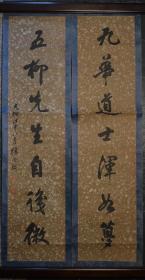 九華道士渾如夢
五柳先生自後徹